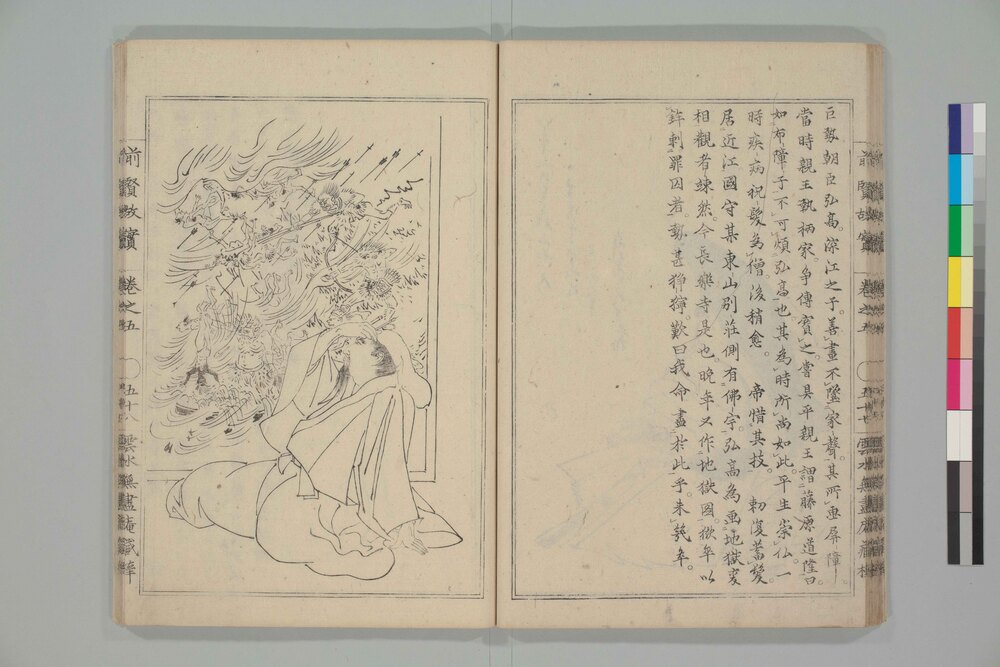 巨勢朝臣弘高。深江之子。善畫不墜家聲。其所畫屏障。
當時親王執柄家。爭傳寶之。嘗具平親王謂藤原道隆曰。
如布障子。不可煩弘高也。其為時所尚如此。平生崇仏。一
時疾病祝髮為僧。後稍愈。帝惜其技。勅復蓄髮。
居近江國守某東山別荘。側有佛宇。弘高為畫地獄変
相。觀者竦然。今長樂寺是也。晩年又作地獄圖。獄卒以
鉾刺罪囚者。勢甚猙獰。歎曰。我命盡於此乎。未幾卒。
前賢故實
卷之五
五十七
雲水無盡庵藏梓
前賢故實
卷之五
五十八
雲水無盡庵藏梓